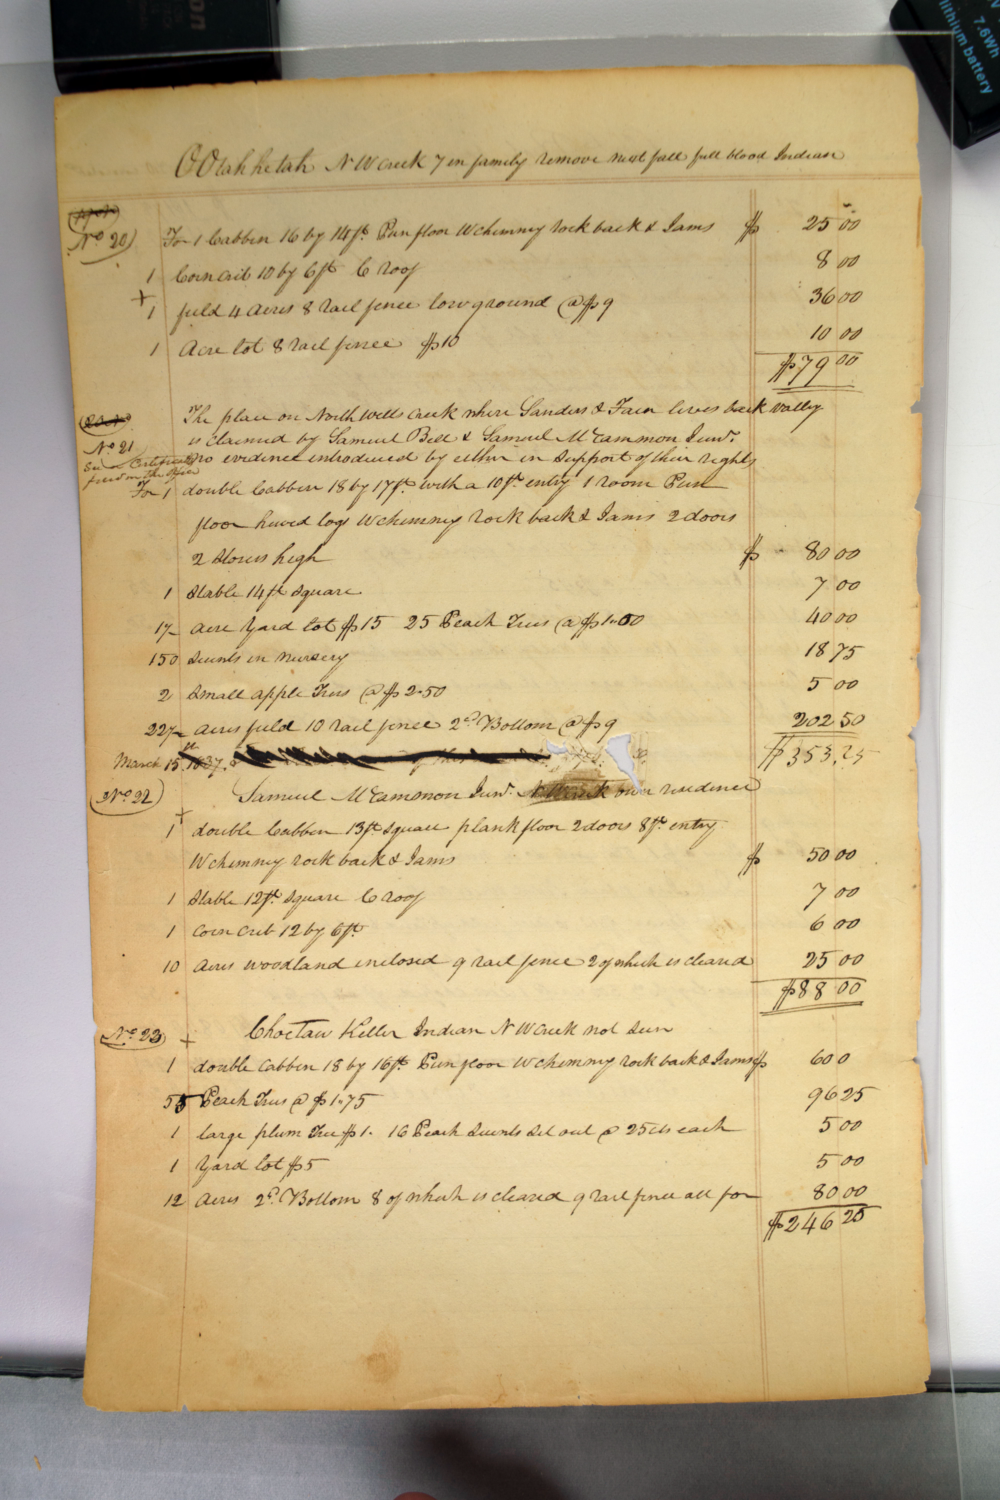 OOtahhetah N W Creek 7 in family remove next fall full blood Indian
No 20) For 1 Cabben 16 by 14ft. Pun floor W chimney rock back & Jams $ 25 00
1 Corn crib 10 by 6ft C roof 8 00
+ 1 field 4 acres 8 rail fence low ground @ $9 36 00
1 Acre lot 8 rail fence $10 10 00
$79 00
The place on North Wells creek where Sanders & Fain lives back valley
No 21 is claimed by Samuel Bell & Samuel McCammon Junr.
no evidence introduced by either in support of their rights
See Certificate
For 1 double Cabben 18 by 17ft. with a 10ft. entry 1 room Pun
floor hewed logs W chimney rock back & Jams 2 doors
2 stories high $ 80 00
1 Stable 14ft square 7 00
17 acre Yard lot $15 25 Peach Trees @ $1.00 40 00
150 Scients in nursery 18 75
2 Small apple Trees @ $2.50 5 00
22 acres field 10 rail fence 2d Bottom @ $9 202 50
March 15th 1837 $353.25
No. 22 Samuel McCammon Junr. N W Creek own residence
+
1 double Cabben 13ft square plank floor 2 doors 8ft. entry
W chimney rock back & Jams $ 50 00
1 Stable 12ft. square C roof 7 00
1 corn crib 12 by 6ft. 6 00
10 Acres woodland inclosed 9 rail fence 2 of which is cleared 25 00
$88 00
No 23 + Choctaw Keller Indian N W Creek not seen
1 double cabben 18 by 16ft. Pun floor W chimney rock back & Jams $ 60 0
55 Peach Trees @ $1.75 96 25
1 large plum Tree $1. 16 Peach Scients set out @ 25cts each 5 00
1 Yard lot $5 5 00
12 Acres 2d. Bottom 8 of which is cleared 9 rail fence all for 80 00
$246 25
7.6Wh
lithium battery